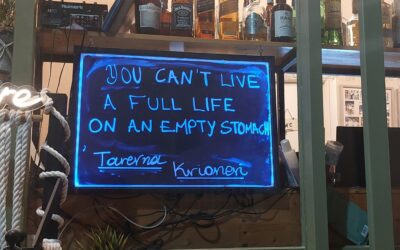 YOU CAN'T LIVE
A FULL LIFE
ON AN EMPTY STOMACH
Taverna Krioneri